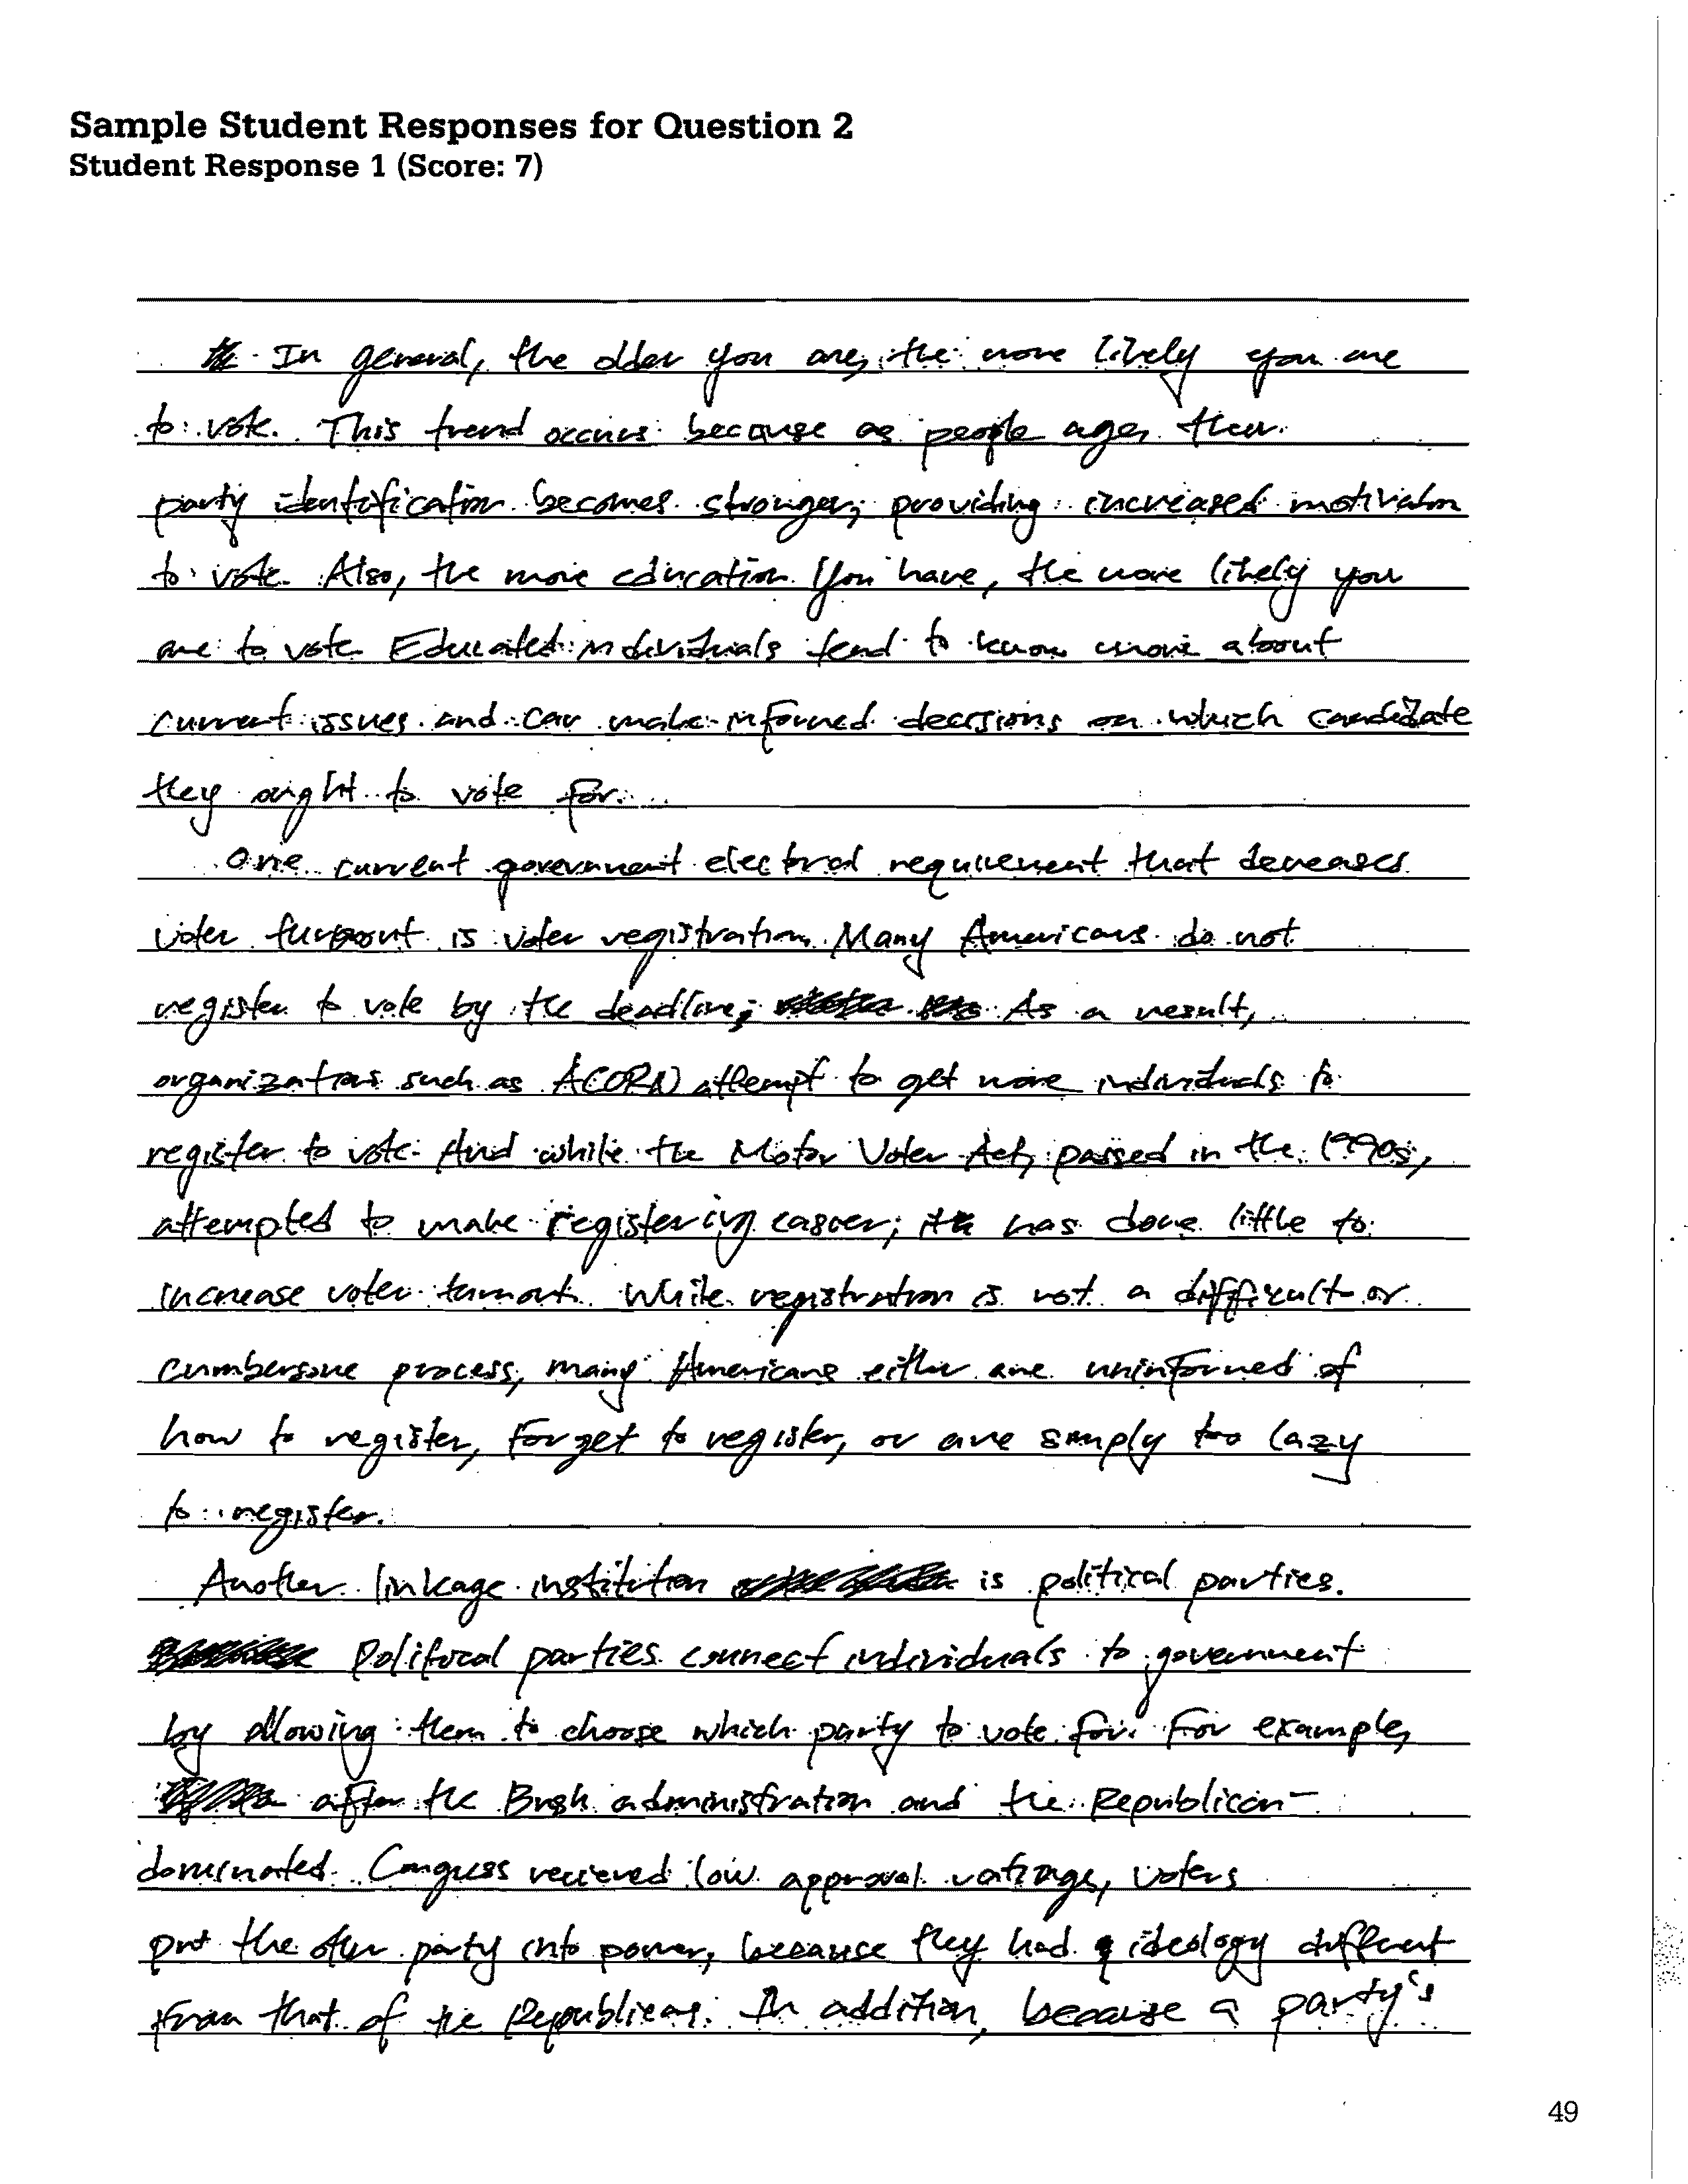 Sample Student Responses for Question 2
Student Response 1 (Score: 7)
In general, the older you are, the more likely you are
to vote. This trend occurs because as people age, their
party identification becomes stronger, providing increased motivation
to vote. Also, the more education you have, the more likely you
are to vote. Educated individuals tend to know more about
current issues and can make informed decisions on which candidate
they ought to vote for.
One current government electoral requirement that decreases
voter turnout is voter registration. Many Americans do not
register to vote by the deadline; As a result,
organizations such as ACORN attempt to get more individuals to
register to vote. And while the Motor Voter Act, passed in the 1990s,
attempted to make registering easier, it has done little to
increase voter turnout. While registration is not a difficult or
cumbersome process, many Americans either are uninformed of
how to register, forget to register, or are simply too lazy
to register.
Another linkage institution is political parties.
Political parties connect individuals to government
by allowing them to choose which party to vote for. For example,
after the Bush administration and the Republican-
dominated Congress recieved low approval ratings, voters
put the other party into power, because they had ideology different
from that of the Republicans. In addition, because a party's
49